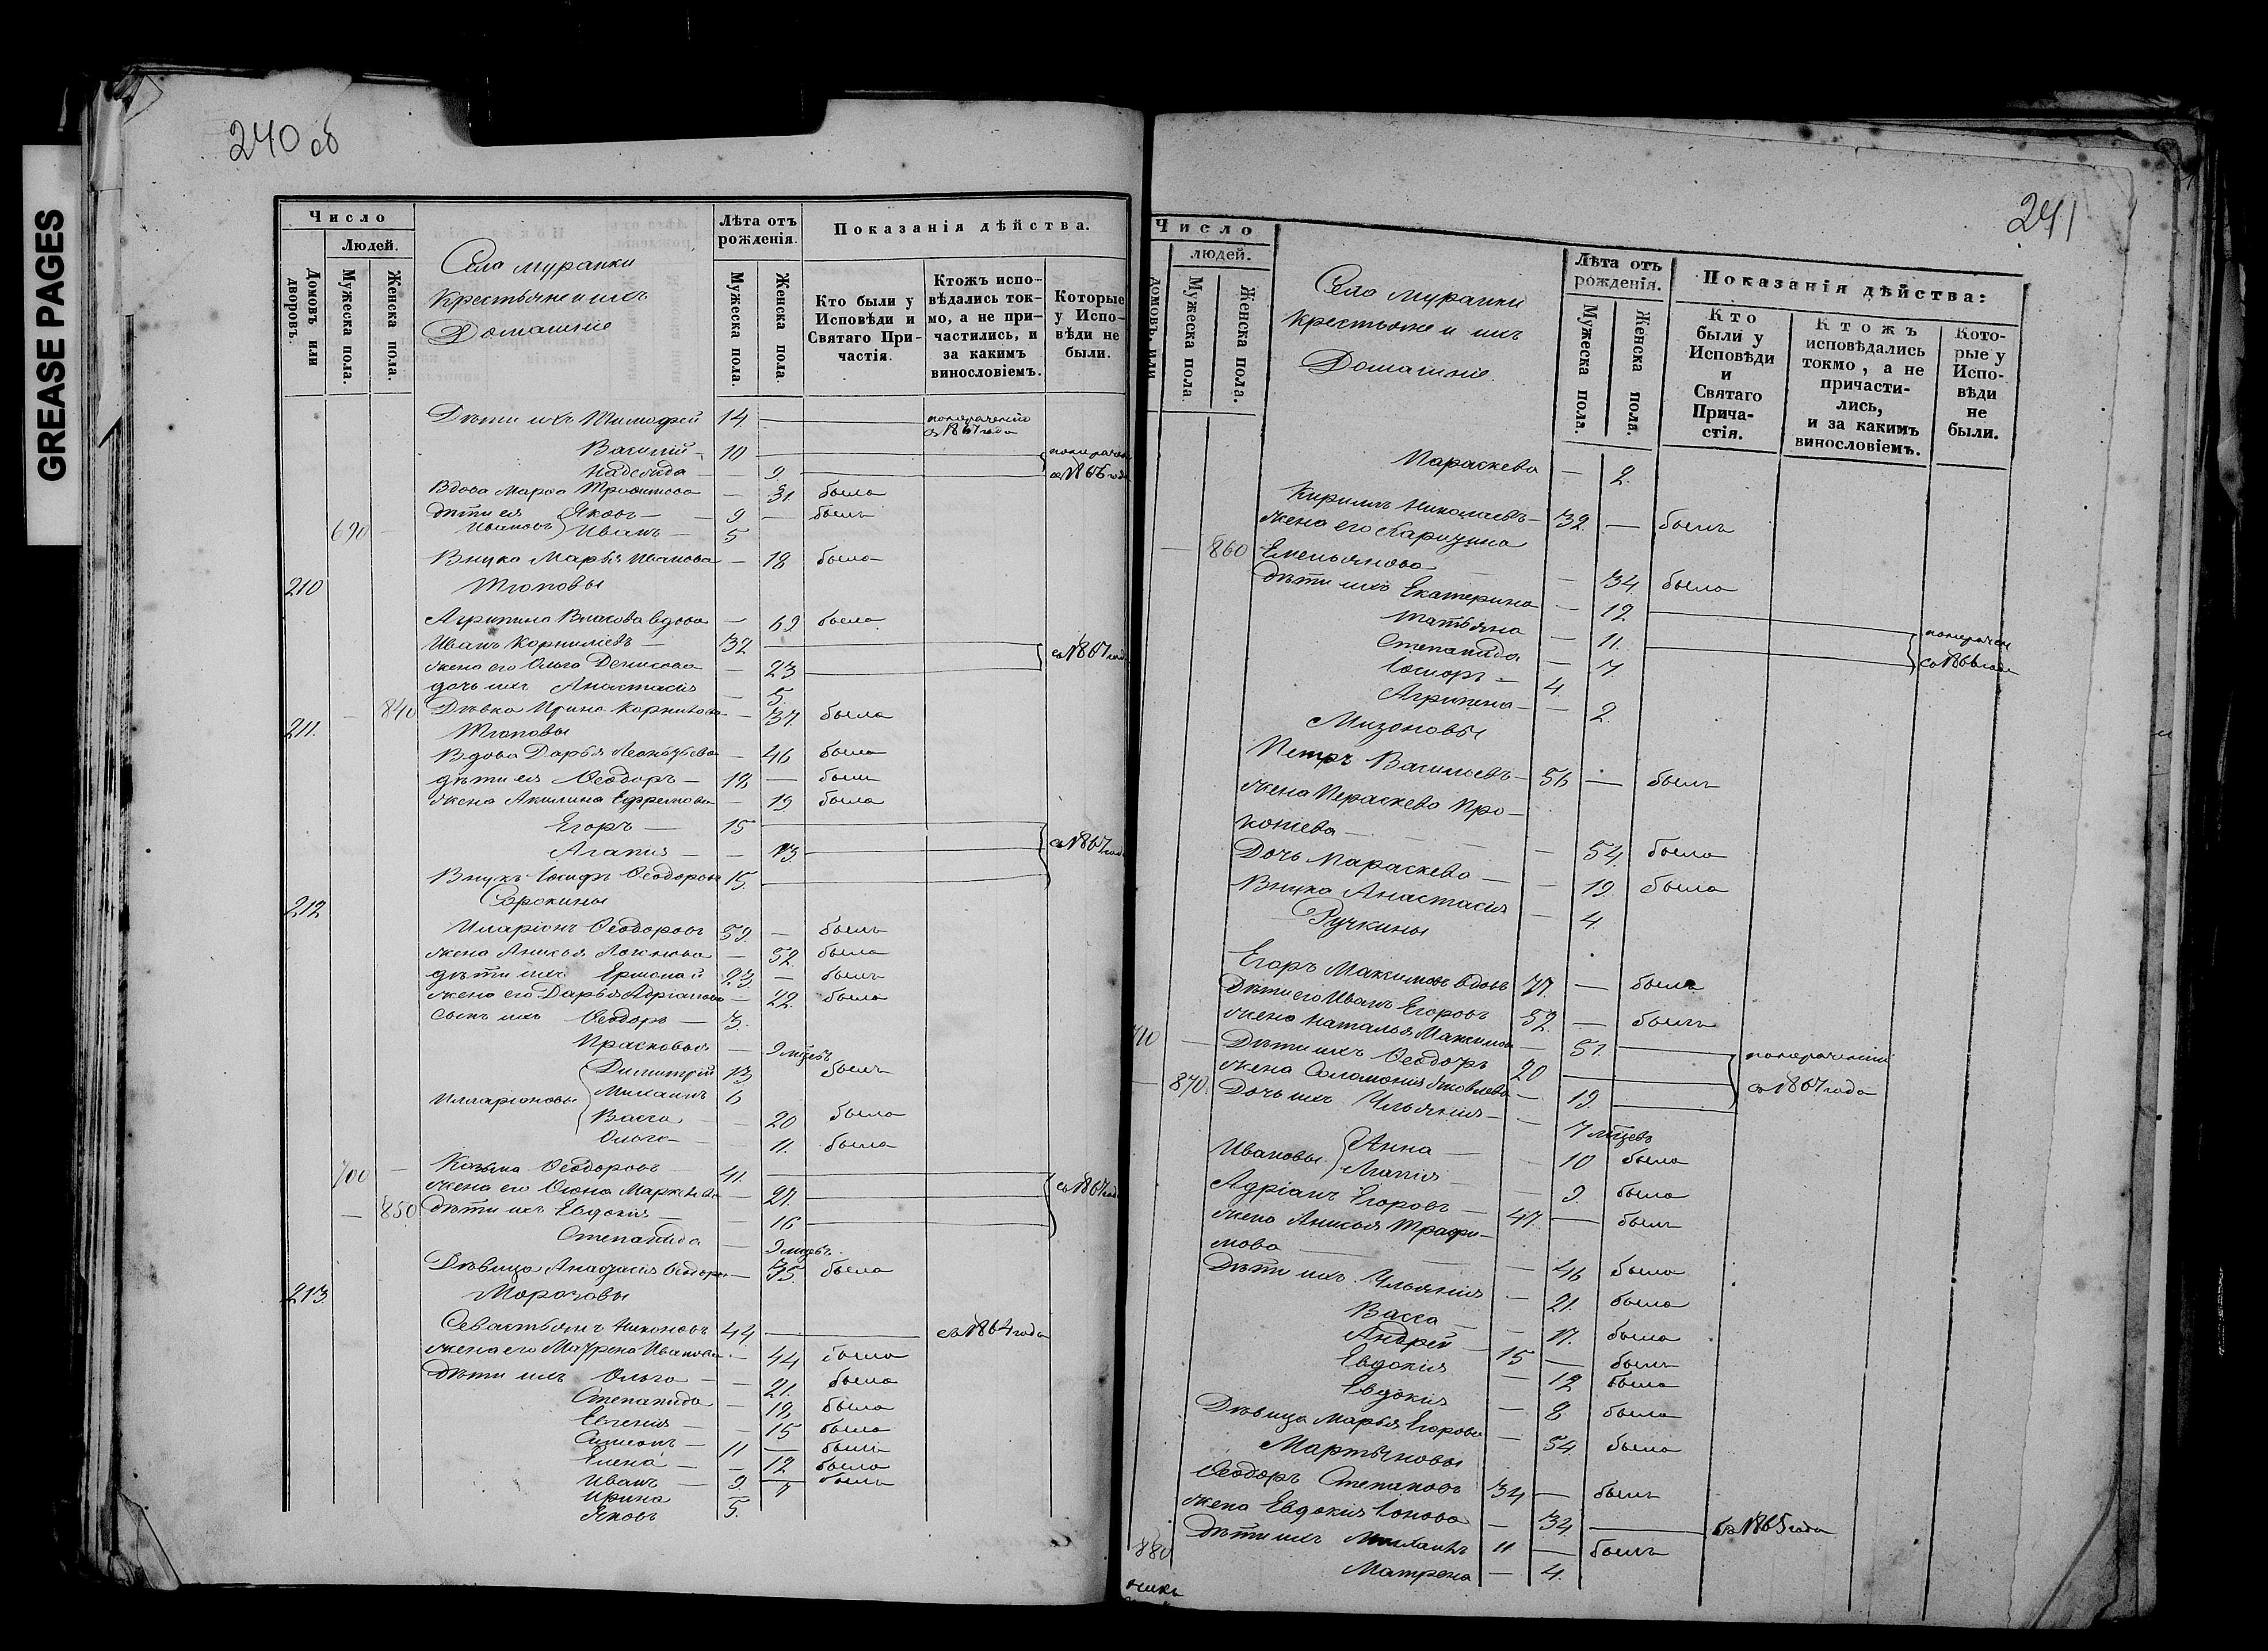 GREASE PAGES
240 об
Число
Людей.
Домовъ или дворовъ.
Мужеска пола.
Женска пола.
Село Муранки
Крестьяне и ихъ
Домашніе
Лѣта отъ рожденія.
Мужеска пола.
Женска пола.
Показанія дѣйства.
Кто были у Исповѣди и Святаго Причастія.
Ктожъ исповѣдались токмо, а не причастились, и за какимъ винословіемъ.
Которые у Исповѣди не были.
Дѣти ихъ Тимофей 14 — съ 1867 года
Василій 10 —
Надежда — 9 — съ 1866 года
Вдова Марѳа — 31 была
дѣти ея Яковъ — 9 — былъ
690 — Ивановы Иванъ — 5
Внука Марья Иванова — 18 была
210
Агрипина Власова вдова — 69 была
Иванъ Корниліевъ — 32 —
жена его Ольга Денисова — 23 — съ 1867 года
дочь ихъ Анастасія — 5
— 840 Дѣвка Ирина Корнилова — 37 была
211.
Вдова Дарья Леонтьева — 46 была
дѣти ея Ѳеодоръ — 18 — былъ
жена Акилина Ефремова — 19 была
Егоръ — 15 —
Агапія — — 13 — съ 1867 года
Внукъ Іосифъ Ѳеодоровъ 15 —
212 Сорокины
Иларіонъ Ѳеодоровъ 59 — былъ
жена Анисья — 52 была
дѣти ихъ Ермолай 23 — былъ
жена его Дарья Адріанова — 22 была
Сынъ ихъ Ѳеодоръ — 3.
Прасковья — 9 мѣсяцевъ
Димитрій 13 былъ
Илларіоновы Михаилъ 6
Васса — 20 была
Ольга — 11. была
700 — Козьма Ѳеодоровъ 41. —
жена его — 27. — съ 1867 года
— 850 Дѣти ихъ Евдокія — 16 —
Степанида — 9 мѣсяц.
Дѣвица Анастасія Ѳеодор. — 35 была
213.
Севастьянъ Никоновъ 44 — съ 1864 года
жена его Маѵрена Иванова — 44 была
Дѣти ихъ Ольга — — 21. была
Степанида — 18 была
Евгенія — — 15 была
Симеонъ — 11 — былъ
Елена — — 12 была
Иванъ — 9 — былъ
Ирина 7
Яковъ 5.
241
Число
людей.
Домовъ или
Мужеска пола
Женска пола.
Село Муранки
Крестьяне и ихъ
Домашніе.
Лѣта отъ рожденія.
Мужеска пола.
Женска пола.
Показанія дѣйства:
Кто были у Исповѣди и Святаго Причастія.
Ктожъ исповѣдались токмо, а не причастились, и за какимъ винословіемъ.
Которые у Исповѣди не были.
Параскева — 2.
Кирилъ Николаевъ — 32. — былъ
жена его
— 860 Емельянова — 34 была
Дѣти ихъ Екатерина — 12 —
Татьяна — 11. —
Степанида — 7. съ 1866 года
4
Агрипена — — 2.
Мизоновы
Петръ Васильевъ — 56 — былъ
жена Параскева Про-
копіева — — 54 была
Дочь Параскева — — 19. была
Внука Анастасія — 4.
Ручкины
Егоръ Максимовъ вдовъ 77. — былъ
Дѣти его Иванъ Егоровъ 52. — былъ
жена Наталья Максимова — 51. —
710 — Дѣти ихъ Ѳеодоръ 20 — съ 1867 года
жена Соломонія Яковлева — 19. —
— 870. Дочь ихъ Ульянія — — 7 мѣсяцевъ
Ивановы Анна — — 10 была
Агапія — — 9. была
Адріанъ Егоровъ — 47. — былъ
жена Анисья Трофи-
мова — — 46 была
Дѣти ихъ Ульянія — 21. была
Васса — — 17. была
Андрей — 15 — былъ
Евдокія — 12 была
Евдокія — 8 была
Дѣвица Марья Егорова — 54 была
Мартыновы
Ѳеодоръ Степановъ 34 — былъ
жена Евдокія — 34. — съ 1865 года
Дѣти ихъ 11 — былъ
880 Матрена — 4.